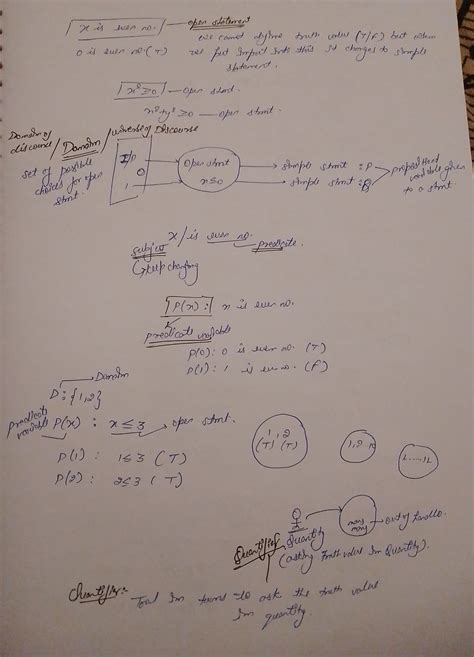 x is even no. — open statement
we cannot define truth value (T/F) but when
0 is even no. (T) we put input into this it changes to simple
statement.
x² ≥ 0 — open stmt.
x²+y² ≥ 0 — open stmt.
Domain of discourse / Domain / universe of Discourse
set of possible choices for open stmt.
I/p
0
1
open stmt
x ≤ 0
simple stmt : P
simple stmt : B
variable given to a stmt.
x / is even no.
subject predicate.
keep changing
P(x) : x is even no.
predicate variable
P(0) : 0 is even no. (T)
P(1) : 1 is even no. (F)
Domain
D : {1,2}
predicate variable P(x) : x ≤ 3 → open stmt.
P(1) : 1 ≤ 3 (T)
P(2) : 2 ≤ 3 (T)
1, 2
(T) (T)
1,2..10
many many
Quantifier Quantity
(asking truth value in quantity).
Quantifier:- Tool in to ask the truth value
in quantity.